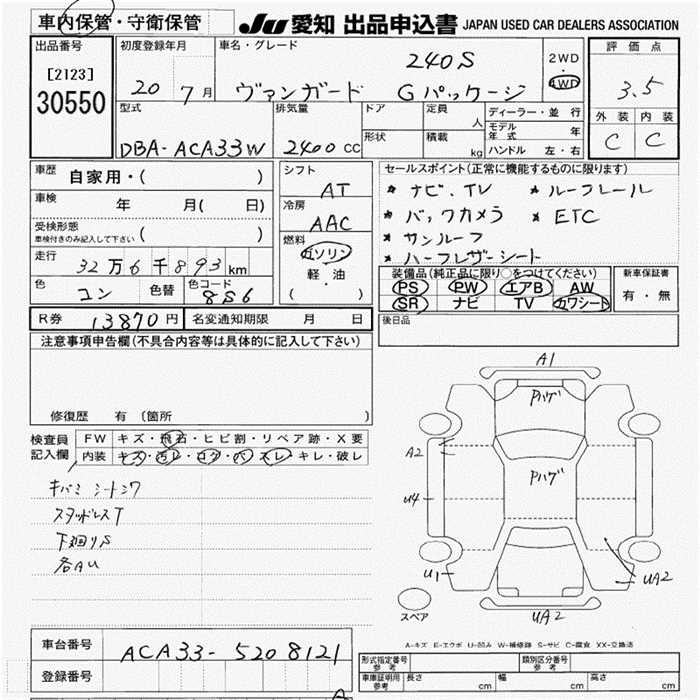 車内保管・守衛保管
JU 愛知 出品申込書 JAPAN USED CAR DEALERS ASSOCIATION
出品番号
[2123]
30550
初度登録年月
20 7月
車名・グレード
240S
ヴァンガード Gパッケージ
2WD
4WD
評価点
3.5
外装 内装
C C
型式
DBA-ACA33W
排気量
2400 CC
ドア
形状
定員
人
積載
kg
ディーラー・並行
モデル年式 年
ハンドル 左・右
車歴
自家用・( )
車検
年 月( 日)
受検形態
車検付きのみ記入して下さい ( )
走行
32万6千893km
色
コン
色替
色コード
8S6
シフト
AT
冷房
AAC
燃料
ガソリン
軽・油
( )
セールスポイント(正常に機能するものに限ります)
* ナビ、TV * ルーフレール
* バックカメラ * ETC
* サンルーフ
* ハーフレザーシート
装備品(純正品に限り○をつけてください)
PS PW エアB AW
SR ナビ TV カワシート
新車保証書
有・無
R券 13870円
名変通知期限 月 日
後日品
注意事項申告欄(不具合内容等は具体的に記入して下さい)
修復歴 有 〔箇所 〕
検査員記入欄
FW キズ・飛石・ヒビ割・リペア跡・X要
内装 キズ・汚レ・コゲ・穴・スレ・キレ・破レ
キバミ シートシワ
スタッドレスT
下廻りS
各AU
A1
Pハゲ
A2
Pハゲ
U4
U1
UA2
UA2
スペア
A-キズ E-エクボ U-凹み W-補修跡 S-サビ C-腐食 XX-交換済
車台番号
ACA33-5208121
登録番号
形式指定番号 参考
類別区分番号 参考
車庫証明用 参考
長さ cm 幅 cm 高さ cm